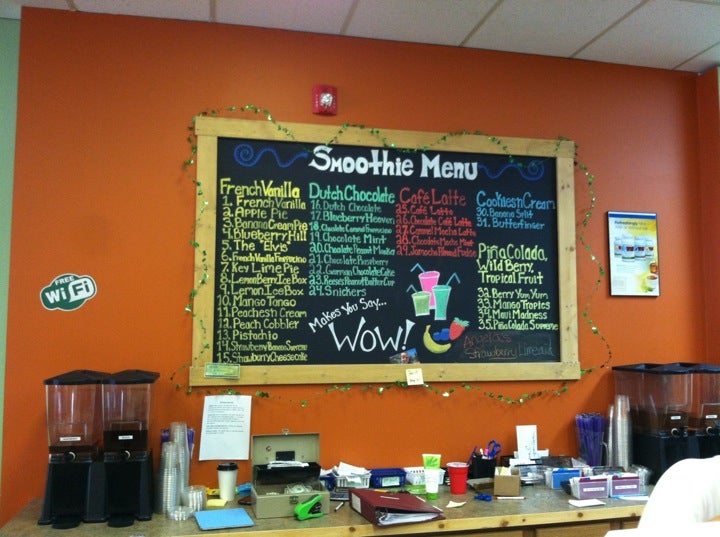 Smoothie Menu
French Vanilla
1. French Vanilla
2. Apple Pie
3. Banana Cream Pie
4. Blueberry Hill
5. The "Elvis"
6. French Vanilla Frappuccino
7. Key Lime Pie
8. Lemon Berry Ice Box
9. Lemon Ice Box
10. Mango Tango
11. Peaches n Cream
12. Peach Cobbler
13. Pistachio
14. Strawberry Banana Supreme
15. Strawburry Cheesecake
Dutch Chocolate
16. Dutch Chocolate
17. Blueberry Heaven
18. Chocolate Caramel Frappuccino
19. Chocolate Mint
20. Chocolate Peanut
21. Chocolate Raspberry
22. German Chocolate Cake
23. Reese's Peanut Butter Cup
24. Snickers
Café Latte
25. Café Latte
26. Chocolate Café Latte
27. Caramel Mocha Latte
28. Chocolate Mocha Mint
29. Jamocha Almond Fudge
Cookies n Cream
30. Banana Split
31. Butterfinger
Piña Colada,
Wild Berry,
Tropical Fruit
32. Berry Yum Yum
33. Mango Tropics
34. Maui Madness
35. Piña Colada Supreme
Makes You Say...
WOW!
Angela's
Strawberry Limeaid
FREE
WiFi